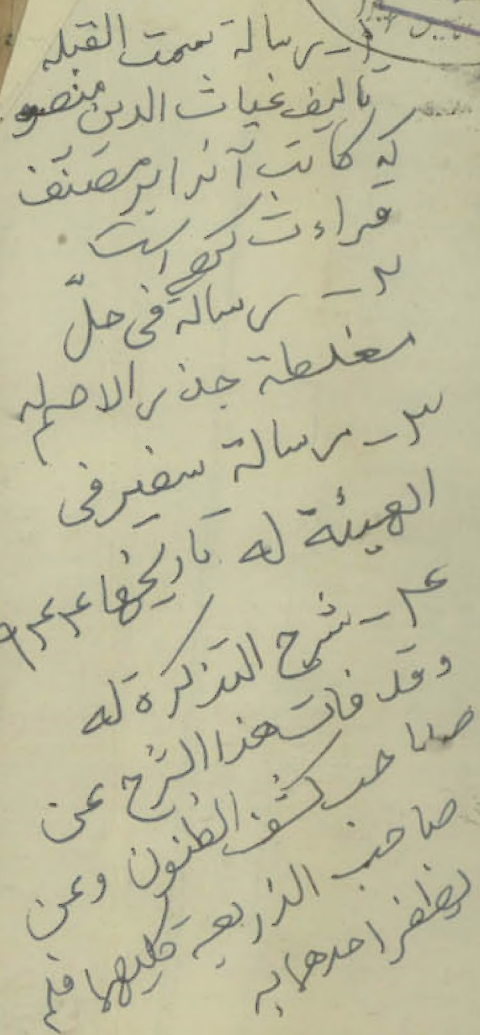 ۱ ـ رسالة سمت القبله
تالیف غیاث الدین منصور
که کاتب آنرا بر مصنف
قراءت کرده است
۲ ـ رسالة فی حلّ
مغلطة جذر الاصم له
۳ ـ رسالة سفیر فی
الهیئة له تاریخها ۹۴۴
۴ ـ شرح التذکرة له
وقد فات هذا الشرح عن
صاحب کشف الظنون وعن
صاحب الذریعه کلیهما فلم
یظفر احدهما به